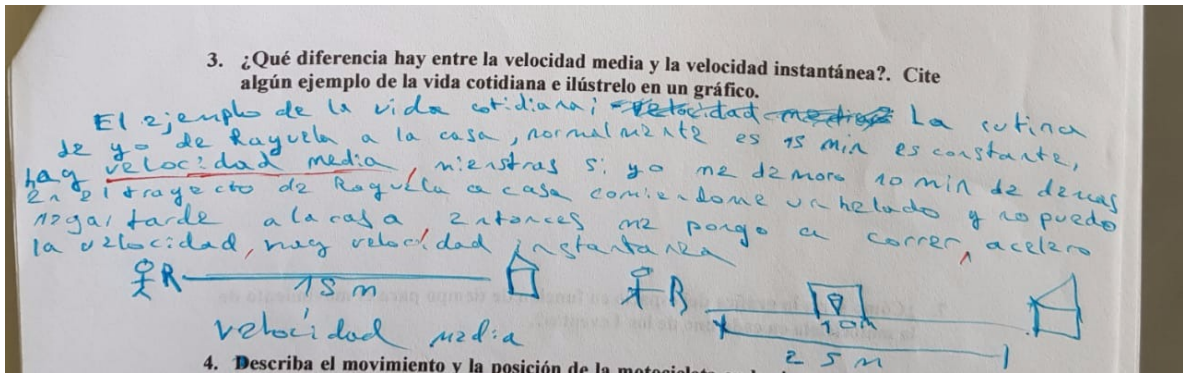 3. ¿Qué diferencia hay entre la velocidad media y la velocidad instantánea?. Cite
algún ejemplo de la vida cotidiana e ilústrelo en un gráfico.
El ejemplo de la vida cotidiana; La rutina
de yo de Rayuela a la casa, normalmente es 15 min es constante,
hay velocidad media, mienstras si yo me demoro 10 min de demas
en el trayecto de Raquela a casa comiendome un helado y no puedo
negar tarde a la casa entonces me pongo a correr, acelero
la velocidad, hay velocidad instantanea
R 15 m R 10m
velocidad media 25 m
4. Describa el movimiento y la posición de la